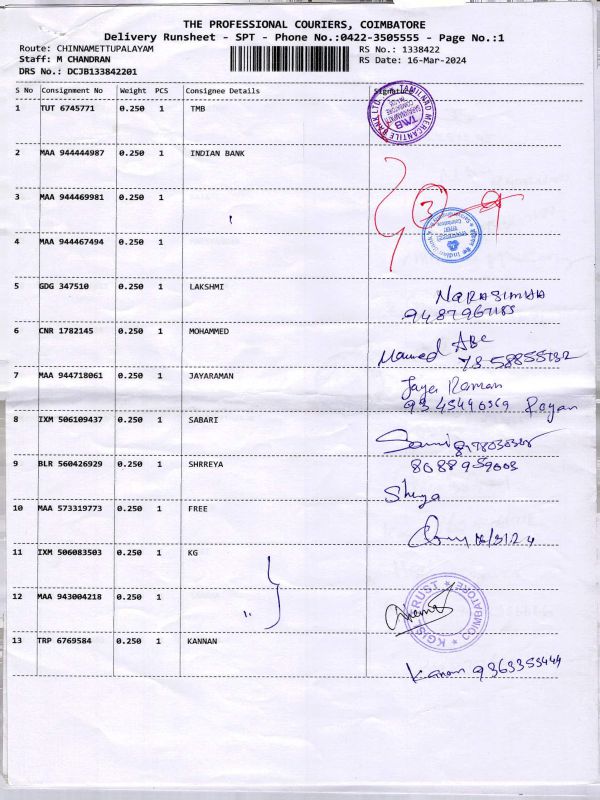 THE PROFESSIONAL COURIERS, COIMBATORE
Delivery Runsheet - SPT - Phone No.:0422-3505555 - Page No.:1
Route: CHINNAMETTUPALAYAM RS No.: 1338422
Staff: M CHANDRAN RS Date: 16-Mar-2024
DRS No.: DCJB133842201
S No Consignment No Weight PCS Consignee Details Signature
1 TUT 6745771 0.250 1 TMB
TAMILNAD MERCANTILE BANK LTD. TMB
2 MAA 944444987 0.250 1 INDIAN BANK
3 MAA 944469981 0.250 1
3
4 MAA 944467494 0.250 1
5 GDG 347510 0.250 1 LAKSHMI
NARASIMHA
6 CNR 1782145 0.250 1 MOHAMMED
7 MAA 944718061 0.250 1 JAYARAMAN
Jaya Raman
8 IXM 506109437 0.250 1 SABARI
9 BLR 560426929 0.250 1 SHRREYA
8088959003
10 MAA 573319773 0.250 1 FREE
11 IXM 506083503 0.250 1 KG
12 MAA 943004218 0.250 1
TRUST COIMBATORE
13 TRP 6769584 0.250 1 KANNAN
9363353449